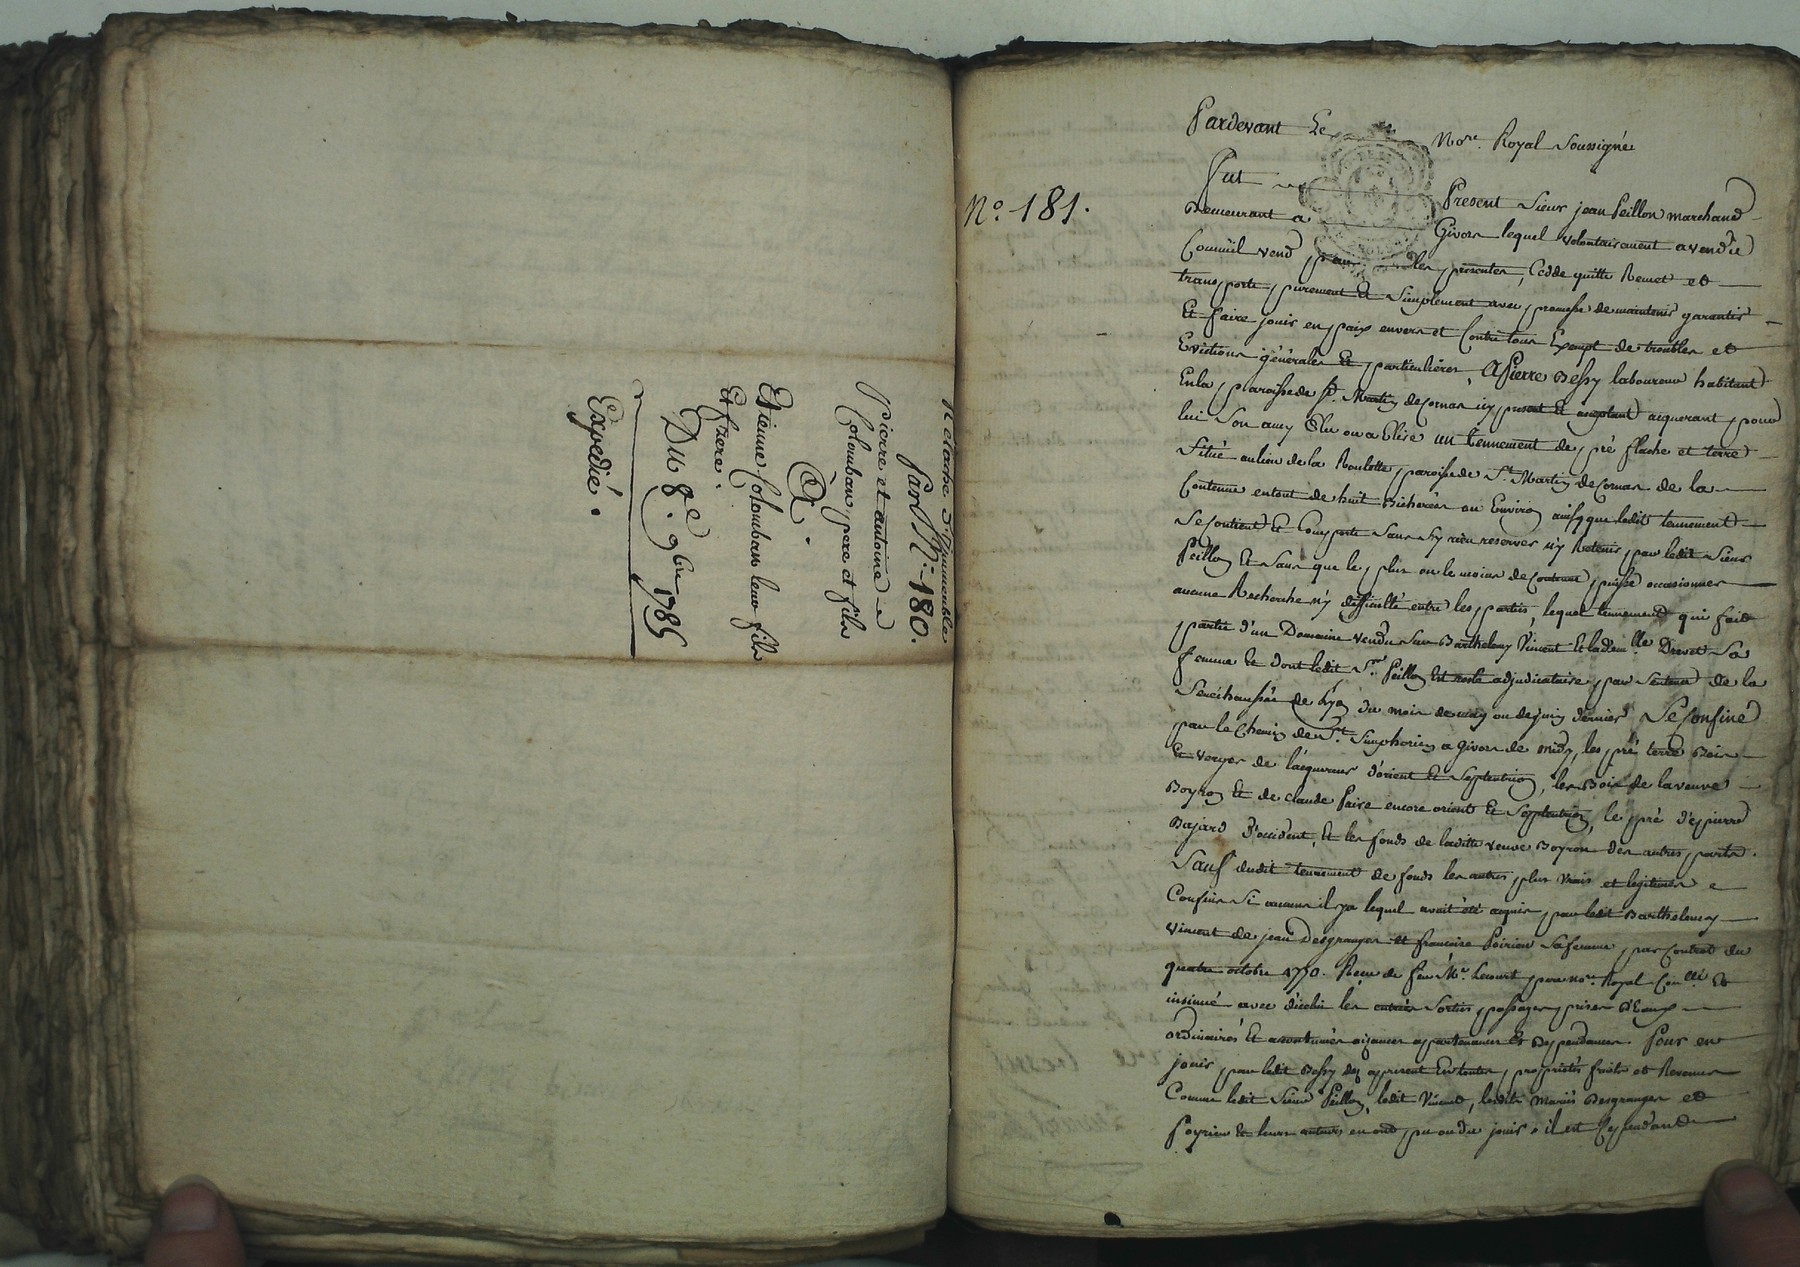 Relache d'immeubles
Par Mr: 180.
pierre et antoine
Colomban pere et fils
A.
Etienne Colomban leur fils
Et frere.
Du 8e. 9bre 1785
Expedié.
N°. 181.
Pardevant Le Nore. Royal Soussigné
Fut Present Sieur jean Peillon marchand
Demeurant a Givors lequel volontairement a vendu
Comme il vend par les presentes, Cedde quitte Remet et
transporte purement Et Simplement avec promesse de maintenir garentir
Et faire jouir en paix envers et Contre tous Exempt de troubles et
Evictions générales Et particulières, A Pierre Bessy laboureur habitant
En la paroisse de St. Martin de Cornas icy present Et acceptant acquerant pour
lui Son amy Elu ou a Elire un tennement de pré flache et terre
Situé au lieu de la Roulotte paroisse de St. Martin de Cornas de la
Contenue en tout de huit Bicherées ou Environ ainsy que ledit tennement
Se Contient Et Comporte Sans S'y rien reserver n'y Retenir par ledit Sieur
Peillon Et Sans que le plus ou le moins de Contenue puisse occasionner
aucune Recherche n'y difficulté entre les parties, lequel tennement qui fait
partie d'un Domaine vendu Sur Barthelemy Vincent Et la demlle Drevet Sa
femme Et dont ledit Sr. Peillon Est resté adjudicataire par Sentence de la
Senéchaussée de Lyon du mois de may ou de juin dernier Se Confine
par le Chemin de St. Simphorien a Givors de midy, les pré terre Bois
Et verger de l'acquereur d'orient Et Septentrion, les Bois de la veuve
Boyron Et de Claude Faire encore orient Et Septentrion, le pré de pierre
Bajard d'occident, Et les fonds de laditte veuve Boyron des autres parts.
Sauf dudit tennement de fonds les autres plus vrais et legitimes
Confins Si aucuns il y a lequel avait été acquis par ledit Barthelemy
Vincent de jean Desgranges et francoise Poirieu Sa femme par Contrat du
quatre octobre 1770. Recu de feu Me. Lecourt pere nore Royal Conllé Et
insinué avec d'icelui les entrées Sorties passages prises d'Eaux
ordinaires Et accoutumées aizances appartenances Et Dependances. Pour en
jouir par ledit Bessy dez apresent En toutes proprietés fruits et Revenus
Comme ledit Sieur Peillon, ledit Vincent, lesdits Mariés Desgranges et
Poyrieu Et leurs auteurs en ont pu ou du jouir, il est Cependant